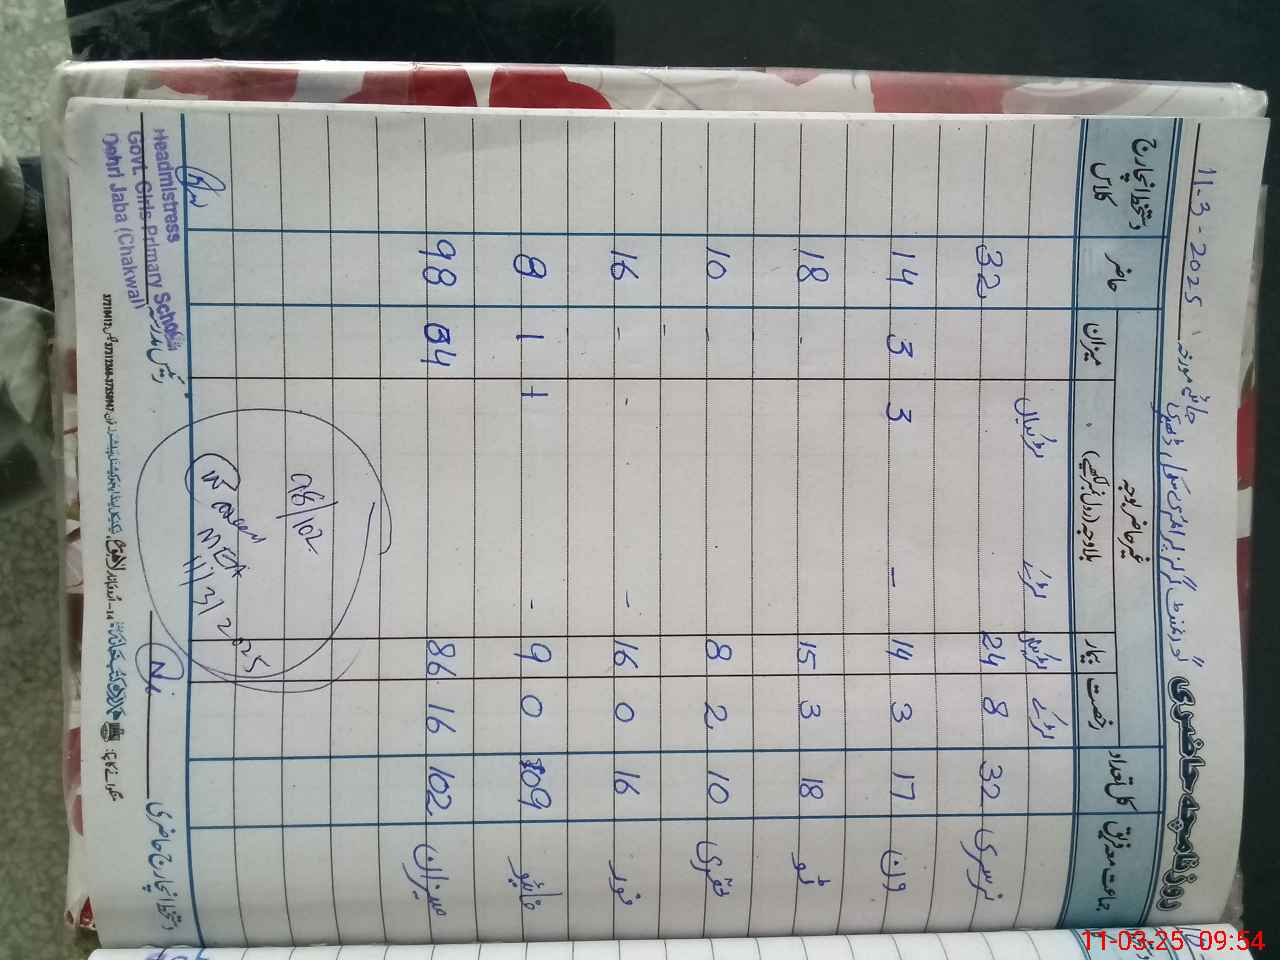 روزنامچہ حاضری گورنمنٹ گرلز پرائمری سکول ڈھیری جابہ مورخہ 11-3-2025
جماعت معہ فریق کل تعداد رخصت بیمار غیر حاضر بوجہ بلاوجہ (رول نمبر لکھیے) میزان حاضر دستخط انچارج کلاس
لڑکے لڑکیاں لڑکے لڑکیاں
نرسری 32 8 24 32
ون 17 3 14 - 3 3 14
ٹو 18 3 15 - 18
تھری 10 2 8 - 10
فور 16 0 16 - - - 16
فائیو 09 0 9 - 1 1 8
میزان 102 16 86 04 98
98/102
MEA
11/3/2025
دستخط انچارج حاضری
رئیس مدرسہ
Headmistress
Govt. Girls Primary School
Dohri Jaba (Chakwal)
11-03-25 09:54